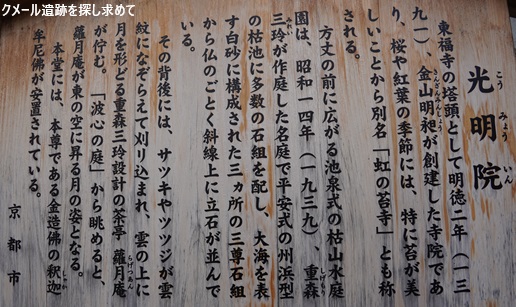 クメール遺跡を探し求めて
光明院
こうみょういん
東福寺の塔頭として明徳二年（一三
九一）、金山明昶が創建した寺院であ
きんざんみんしょう
り、桜や紅葉の季節には、特に苔が美
しいことから別名「虹の苔寺」とも称
される。
方丈の前に広がる池泉式の枯山水庭
園は、昭和一四年（一九三九）、重森
しげもり
三玲が作庭した名庭で平安式の州浜型
みれい
の枯池に多数の石組を配し、大海を表
す白砂に構成された三ヵ所の三尊石組
から仏のごとく斜線上に立石が並んで
いる。
その背後には、サツキやツツジが雲
紋になぞらえて刈り込まれ、雲の上に
月を形どる重森三玲設計の茶亭　蘿月庵
らげつあん
が佇む。「波心の庭」から眺めると、
蘿月庵が東の空に昇る月の姿となる。
本堂には、本尊である金造佛の釈迦
しゃか
牟尼佛が安置されている。
京都市